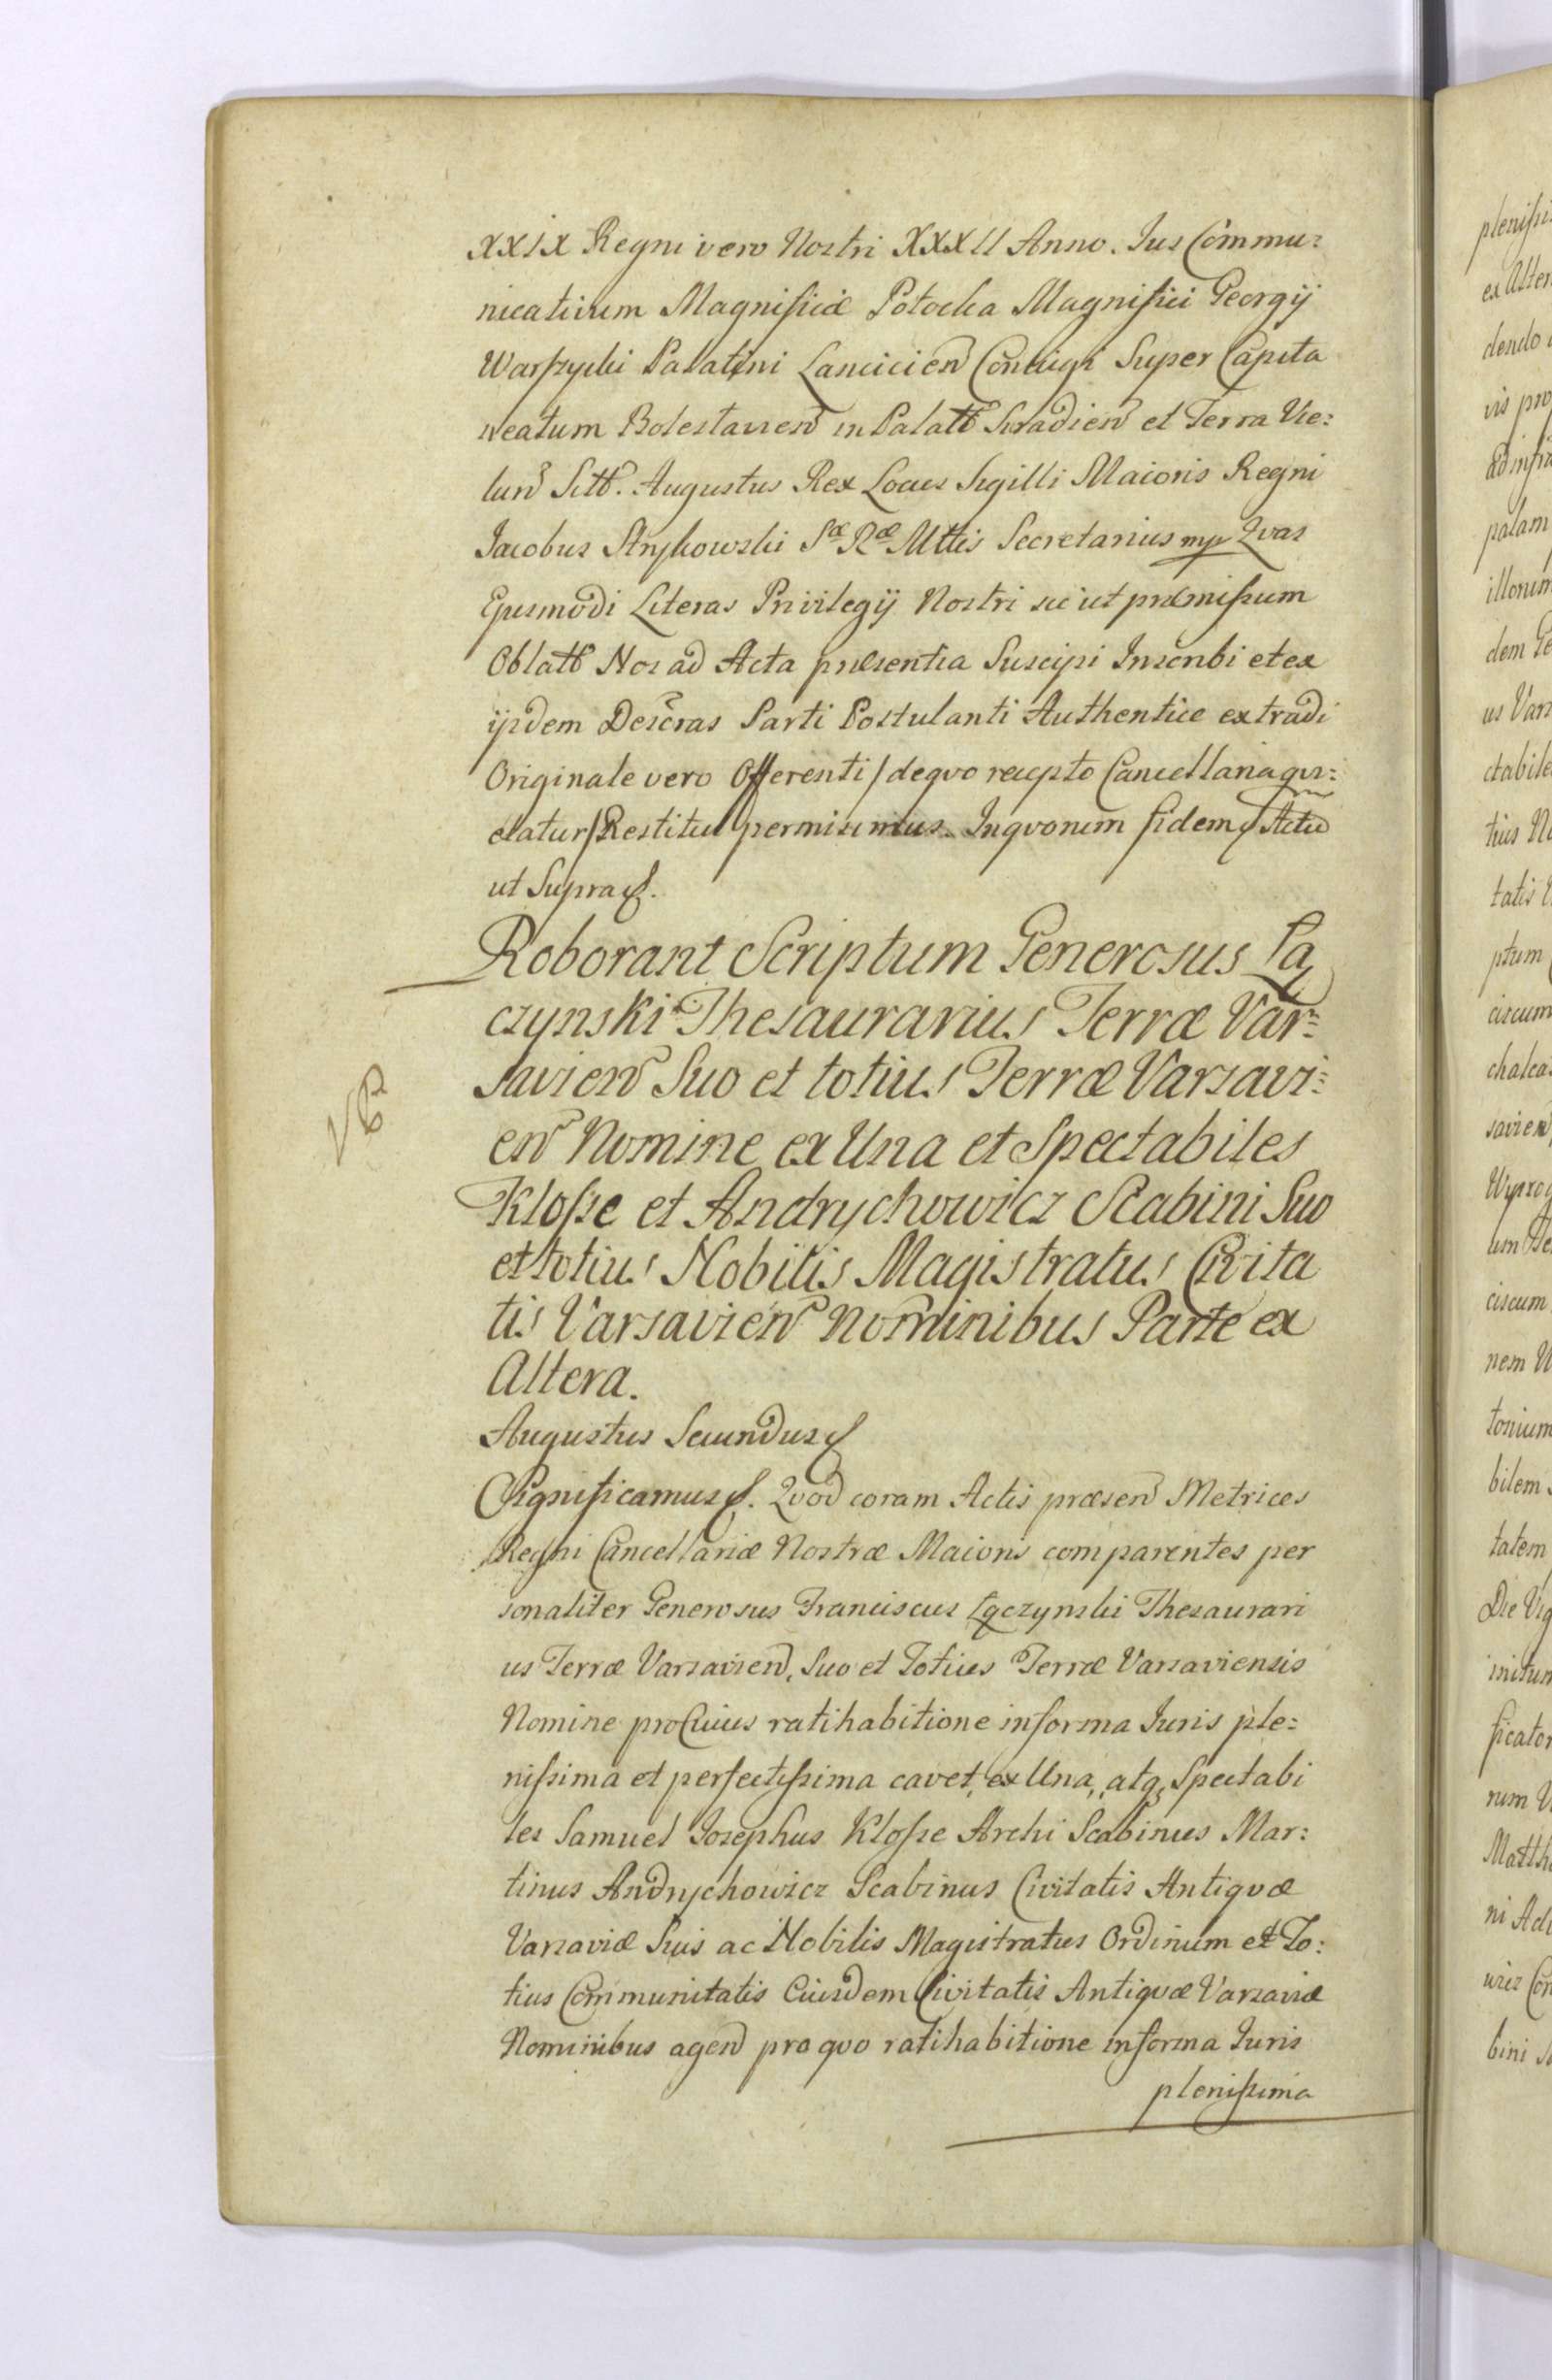 XXIX Regni vero Nostri XXXII Anno. Ius Commu:
nicativum Magnificæ Potocka Magnifici Georgij
Warszycki Palatini Lancicien Coniugi Super Capita
neatum Bolestavien in Palattu Siradien et Terra Vie:
lun Sittu. Augustus Rex Locus Sigilli Maioris Regni
Jacobus Strykowski Sæ Ræ Mttis Secretarius mp Qvas
Ejusmodi Literas Privilegij Nostri sic ut præmissum
Oblattas Nos ad Acta præsentia Suscipi Inscribi et ex
ijsdem Descras Parti Postulanti Authentice extradi
Originale vero Offerenti / de qvo recepto Cancellaria qvi:
etatur / Restitui permisimus. In qvorum fidem & Actu
ut Supra &.
Roborant Scriptum Generosus Łą
czynski Thesaurarius Terræ Var:
savien Suo et totius Terræ Varsavi:
en Nomine ex Una et Spectabiles
Klosse et Andrychowicz Scabini Suo
et totius Nobilis Magistratus Civita
tis Varsavien Nominibus Parte ex
Altera.
NB
Augustus Secundus &
Significamus &. Qvod coram Actis præsen Metrices
Regni Cancellariæ Nostræ Maioris comparentes per
sonaliter Generosus Franciscus Łączynski Thesaurari
us Terræ Varsavien, Suo et Totius Terræ Varsaviensis
Nomine pro Cuius ratihabitione in forma Iuris ple:
nissima et perfectissima cavet, ex Una, atq, Spectabi
les Samuel Josephus Klosse Archi Scabinus Mar:
tinus Andrychowicz Scabinus Civitatis Antiqvæ
Varsaviæ Suis ac Nobilis Magistratus Ordinum et To:
tius Communitatis Eiusdem Civitatis Antiqvæ Varsaviæ
Nominibus agen pro qvo ratihabitione in forma Iuris
plenissima